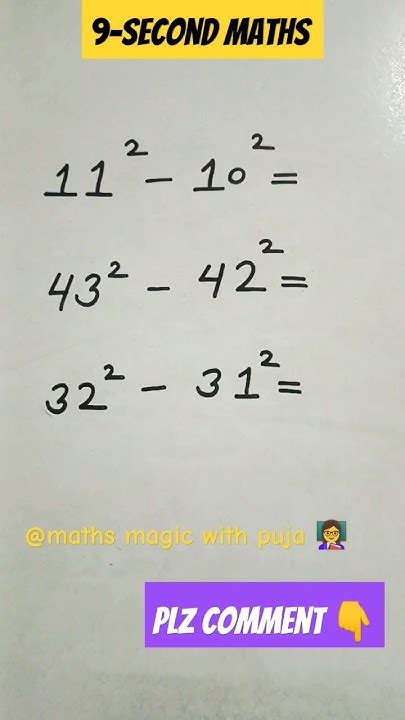 9-SECOND MATHS
11² - 10² =
43² - 42² =
32² - 31² =
@maths magic with puja 👩‍🏫
PLZ COMMENT 👇